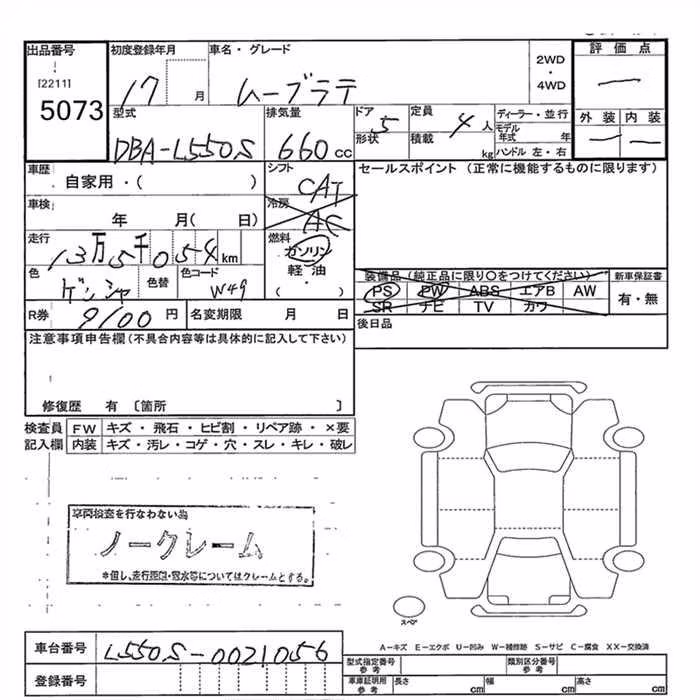 出品番号
[2211]
5073
初度登録年月
17 月
車名・グレード
ムーブラテ
2WD
・
4WD
評価点
—
外装 内装
— —
型式
DBA-L550S
排気量
660 cc
ドア
形状 5
定員
積載 4 人
kg
ディーラー・並行
モデル
年式 年
ハンドル 左・右
車歴
自家用・( )
シフト
CAT
セールスポイント (正常に機能するものに限ります)
車検
年 月( 日)
冷房
AC
走行
13万5千054km
燃料
ガソリン
・
軽・油
・
( )
色
ゲンシャ
色替
色コード
W49
装備品 (純正品に限り○をつけてください)
PS PW ABS エアB AW
SR ナビ TV カワ
新車保証書
有・無
R券 9100 円
名変期限 月 日
後日品
注意事項申告欄(不具合内容等は具体的に記入して下さい)
修復歴 有 〔箇所 〕
検査員 FW キズ・飛石・ヒビ割・リペア跡・×要
記入欄 内装 キズ・汚レ・コゲ・穴・スレ・キレ・破レ
車両検査を行なわない為
ノークレーム
*但し、走行距離・冠水等についてはクレームとする。
スペア
A−キズ E−エクボ U−凹み W−補修跡 S−サビ C−腐食 XX−交換済
車台番号 L550S-0021056
登録番号
型式指定番号
参考
類別区分番号
参考
車庫証明用
参考
長さ cm 幅 cm 高さ cm